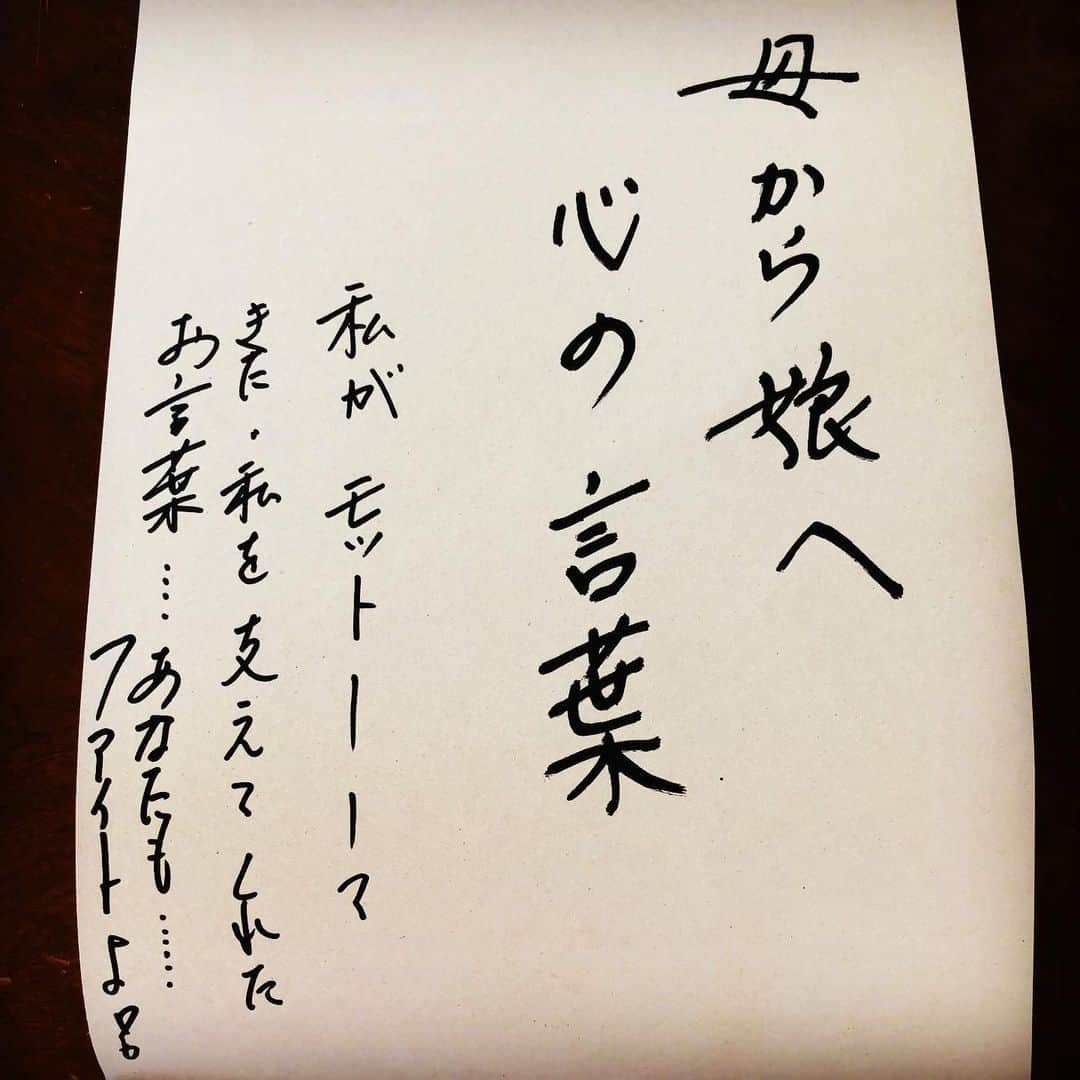 母から娘へ
心の言葉
私がモットーして
きた・私を支えてくれた
お言葉……あなたも……
ファイトよ!!